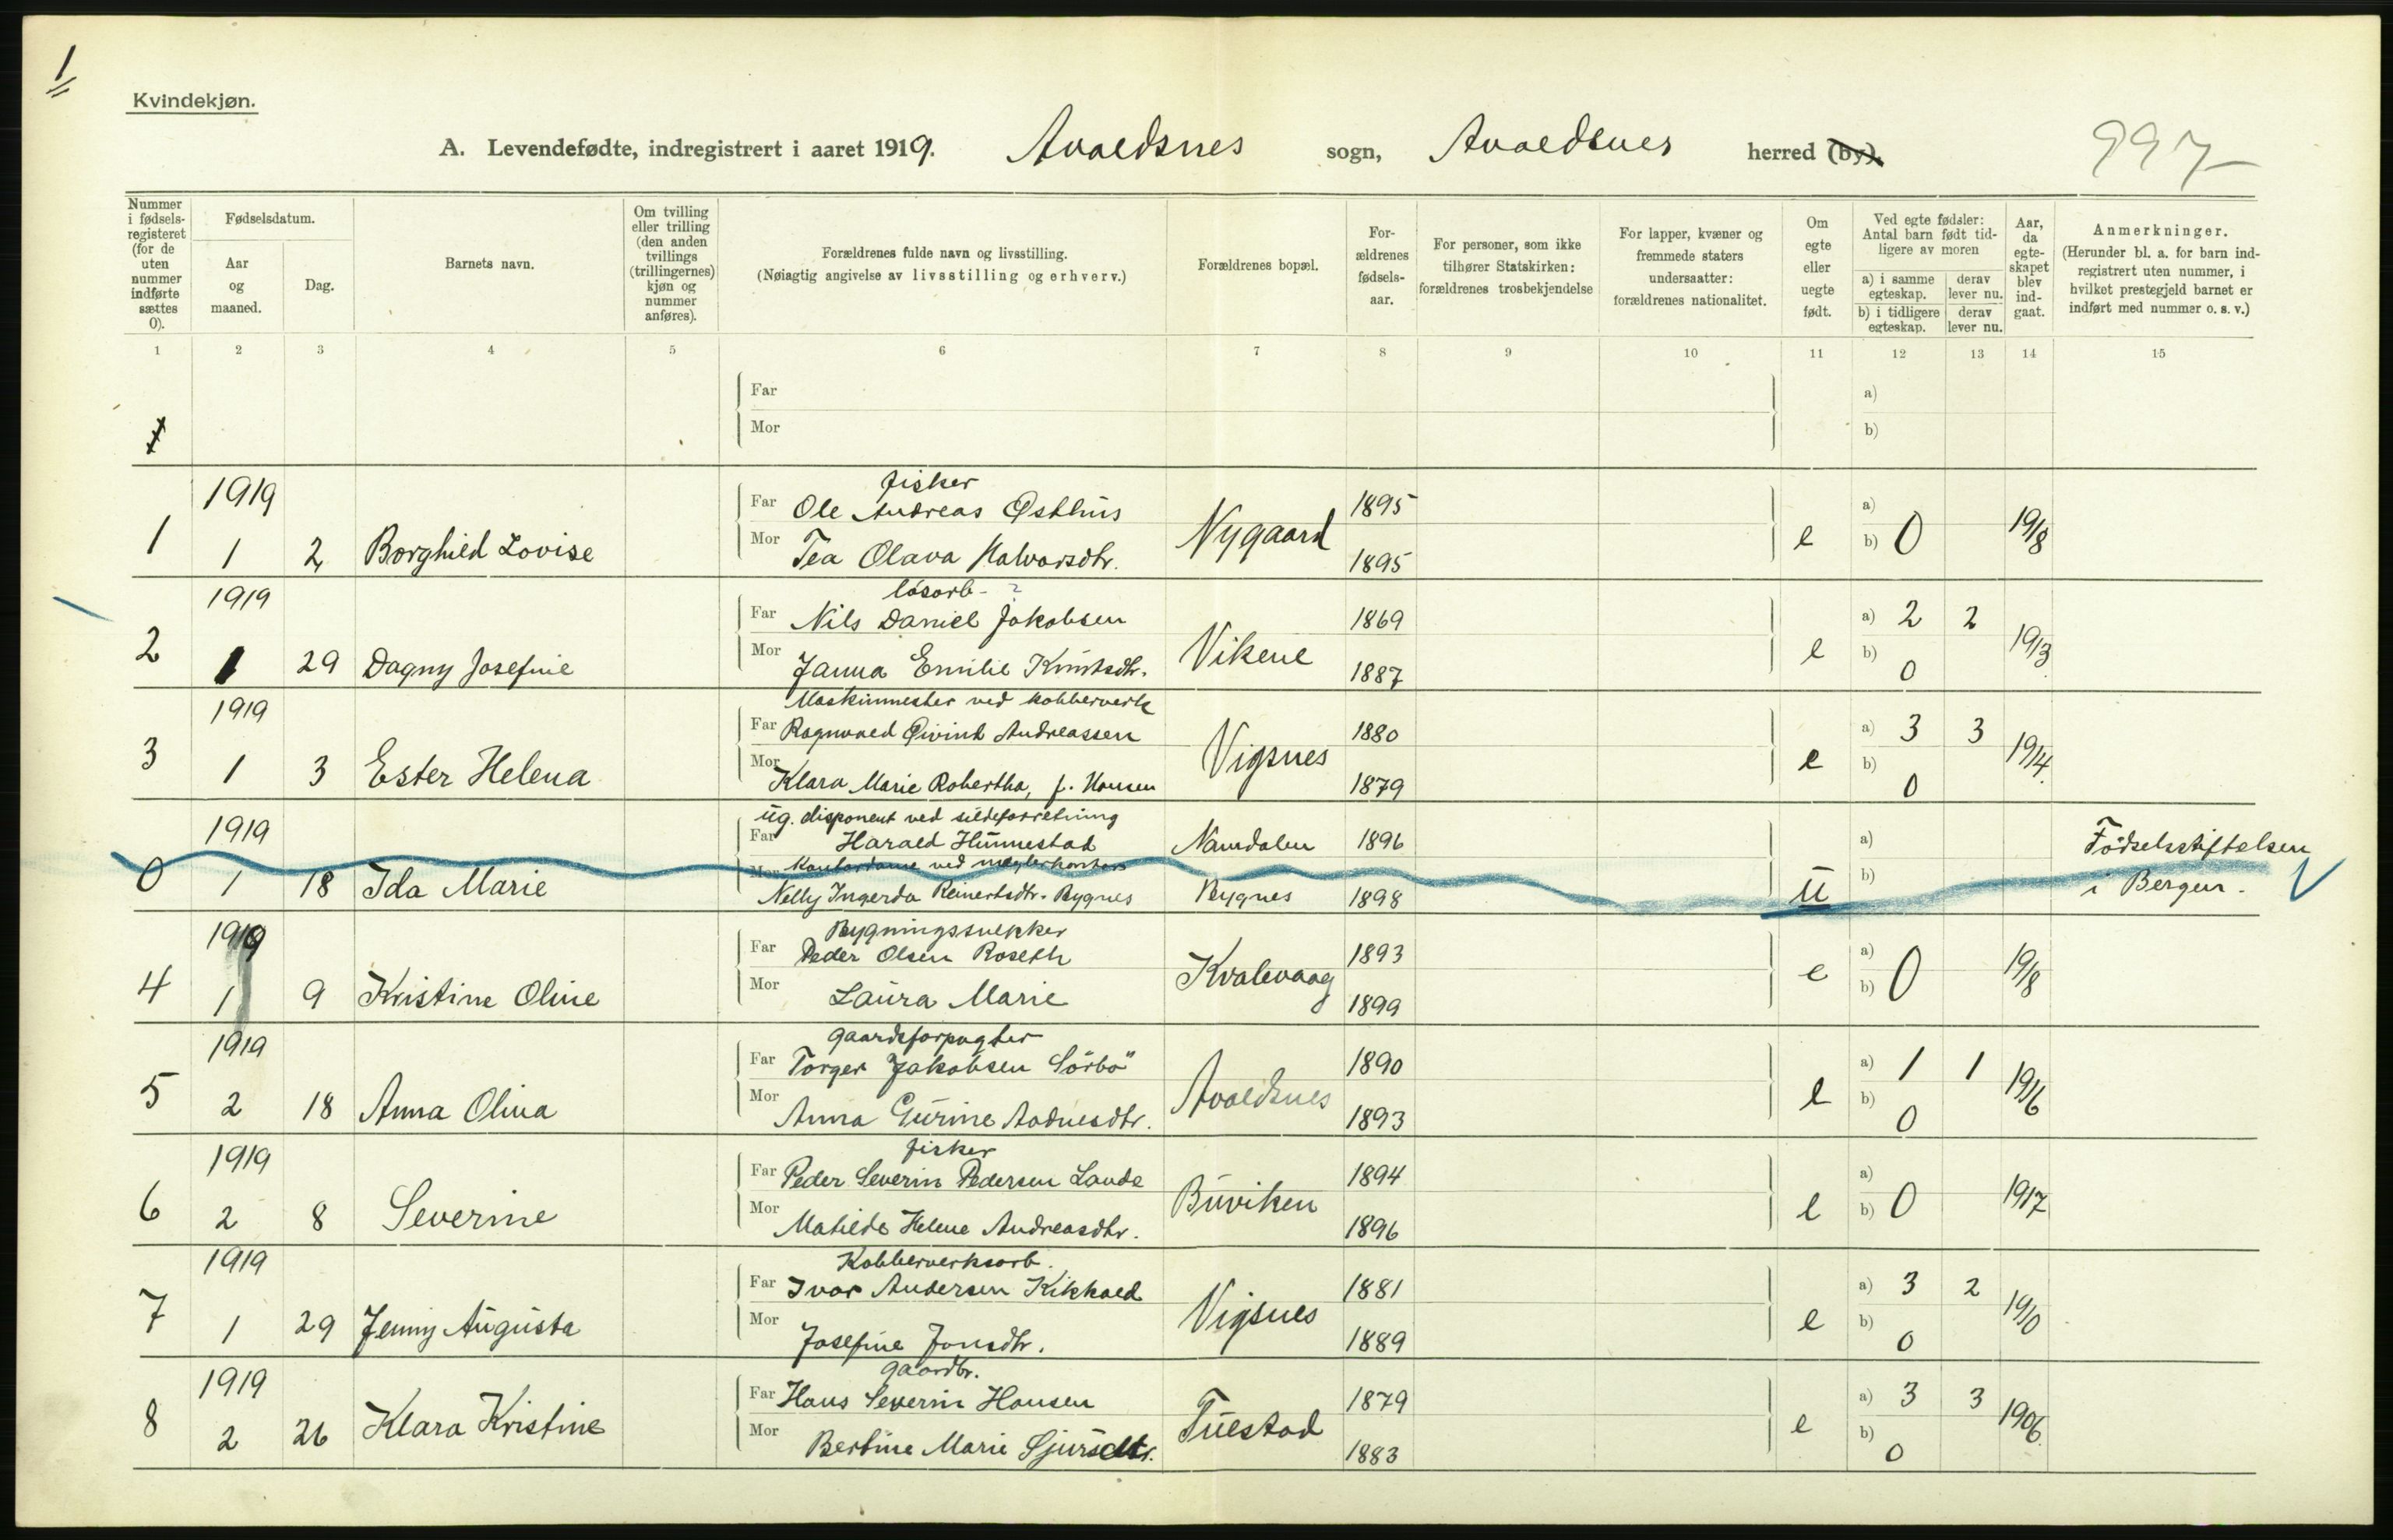 1
Kvindekjøn.
A. Levendefødte, indregistrert i aaret 1919. Avaldsnes sogn, Avaldsnes herred (by).
997
Nummer i fødsels-registeret (for de uten nummer indførte sættes 0).
Fødselsdatum.
Aar og maaned.
Dag.
Barnets navn.
Om tvilling eller trilling (den anden tvillings (trillingernes) kjøn og nummer anføres).
Forældrenes fulde navn og livsstilling.
(Nøiagtig angivelse av livsstilling og erhverv.)
Forældrenes bopæl.
For-ældrenes fødsels-aar.
For personer, som ikke tilhører Statskirken: forældrenes trosbekjendelse
For lapper, kvæner og fremmede staters undersaatter: forældrenes nationalitet.
Om egte eller uegte født.
Ved egte fødsler: Antal barn født tid-ligere av moren
a) i samme egteskap.
derav lever nu.
b) i tidligere egteskap.
derav lever nu.
Aar, da egte-skapet blev ind-gaat.
Anmerkninger.
(Herunder bl. a. for barn ind-registrert uten nummer, i hvilket prestegjeld barnet er indført med nummer o. s. v.)
1 2 3 4 5 6 7 8 9 10 11 12 13 14 15
Far a)
1 Mor b)
1919 fisker
Far Ole Andreas Østhus 1895 a)
1 1 2 Borghild Lovise Nygaard e b) 0 1918
Mor Tea Olava Halvorsdtr. 1895
1919 løsarb - ?
Far Nils Daniel Jakobsen 1869 a) 2 2
2 1 29 Dagny Josefine Vikene e b) 0 1913
Mor Janna Emilie Knutsdtr. 1887
1919 Maskinmester ved kobberverk
Far Ragnvald Øivind Andreassen 1880 a) 3 3
3 1 3 Ester Helena Vigsnes e b) 0 1914.
Mor Klara Marie Robertha, f. Hansen 1879
1919 ug. disponent ved sildeforretning
Far Harald Hunnestad Namdalen 1896 a) Fødselsstiftelsen
0 1 18 Ida Marie Kontordame ved meglerkontor u b) i Bergen.
Mor Nelly Ingerda Reinertsdtr. Bygnes Bygnes 1898
1919 Bygningssnekker
Far Peder Olsen Roseth 1893 a)
4 1 9 Kristine Oline Kvalevaag e b) 0 1918
Mor Laura Marie 1899
1919 gaardsforpagter
Far Torger Jakobsen Sörbö 1890 a) 1 1
5 2 18 Anna Olina Avaldsnes e b) 0 1916
Mor Anna Gurine Aadnesdtr. 1893
1919 fisker
Far Peder Severin Pedersen Lande 1894 a)
6 2 8 Severine Buviken e b) 0 1917
Mor Mathilde Helene Andreasdtr. 1896
1919 Kobberverksarb.
Far Ivar Andersen Kihhaed 1881 a) 3 2
7 1 29 Jenny Augusta Vigsnes e b) 0 1910
Mor Josefine Jonsdtr. 1889
1919 gaardbr.
Far Hans Severin Hansen 1879 a) 3 3
8 2 26 Klara Kristine Tuestad e b) 0 1906.
Mor Bertine Marie Sjursdtr. 1883